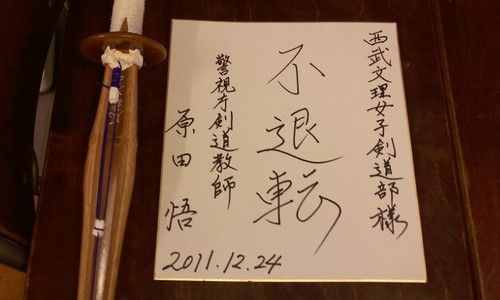 西武文理女子剣道部様
不退転
警視庁剣道教師
原田悟
2011.12.24